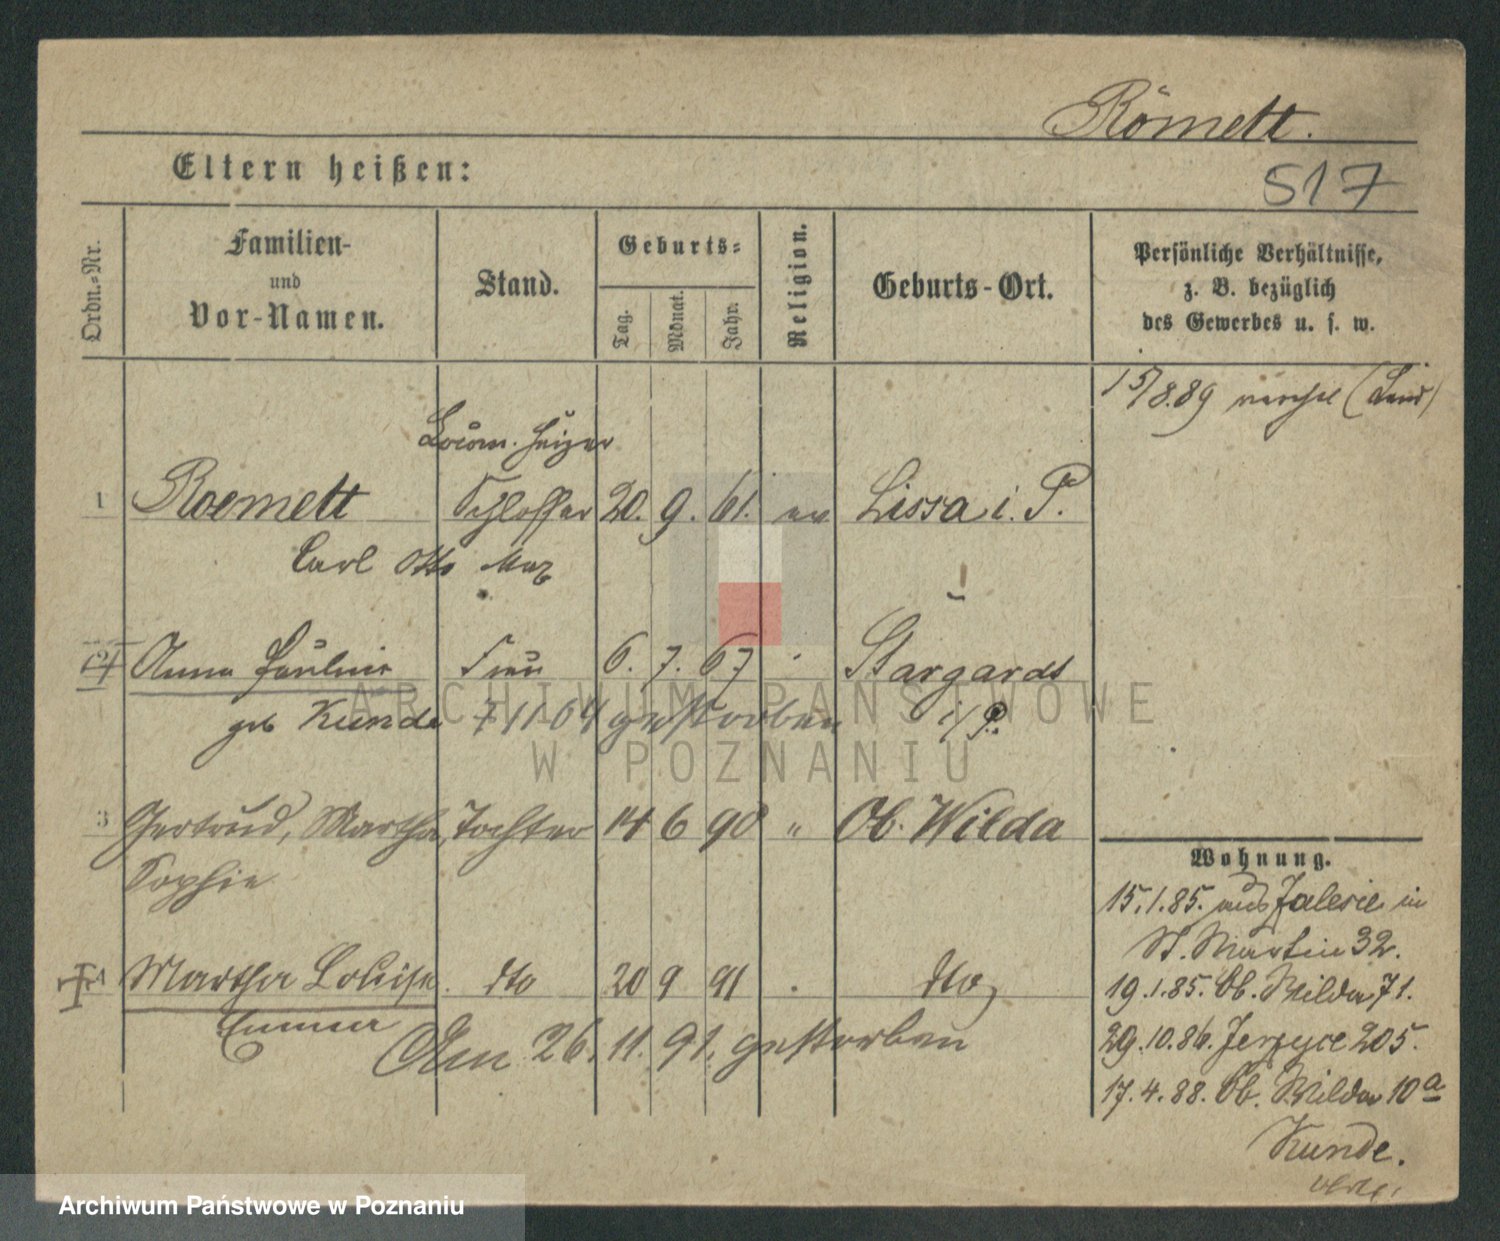 Römett.
517
Eltern heißen:
Ordn.-Nr.
Familien-
und
Vor-Namen.
Stand.
Geburts-
Tag.
Monat.
Jahr.
Religion.
Geburts-Ort.
Persönliche Verhältnisse,
z. B. bezüglich
des Gewerbes u. s. w.
15/8.89
Locom. Heizer
1 Roemett Schlosser 20. 9. 61. ev Lissa i. P.
Carl Otto Max
2 Anna Pauline Frau 6. 7. 67 Stargardt
geb Kunde 7 11 04 gestorben i/P.
3 Gertrud, Martha, Tochter 14 6 90 " Ob. Wilda
Sophie
4 Martha Louise dto 20 9 91 dto
Emma
Am 26. 11. 91. gestorben
Wohnung.
15.1.85. aus in
St. Martin 32.
19.1.85. Ob. Wilda 71.
29.10.86. Jerzyce 205.
17.4.88. Ob. Wilda 10a
Kunde.
ARCHIWUM PAŃSTWOWE
W POZNANIU
Archiwum Państwowe w Poznaniu